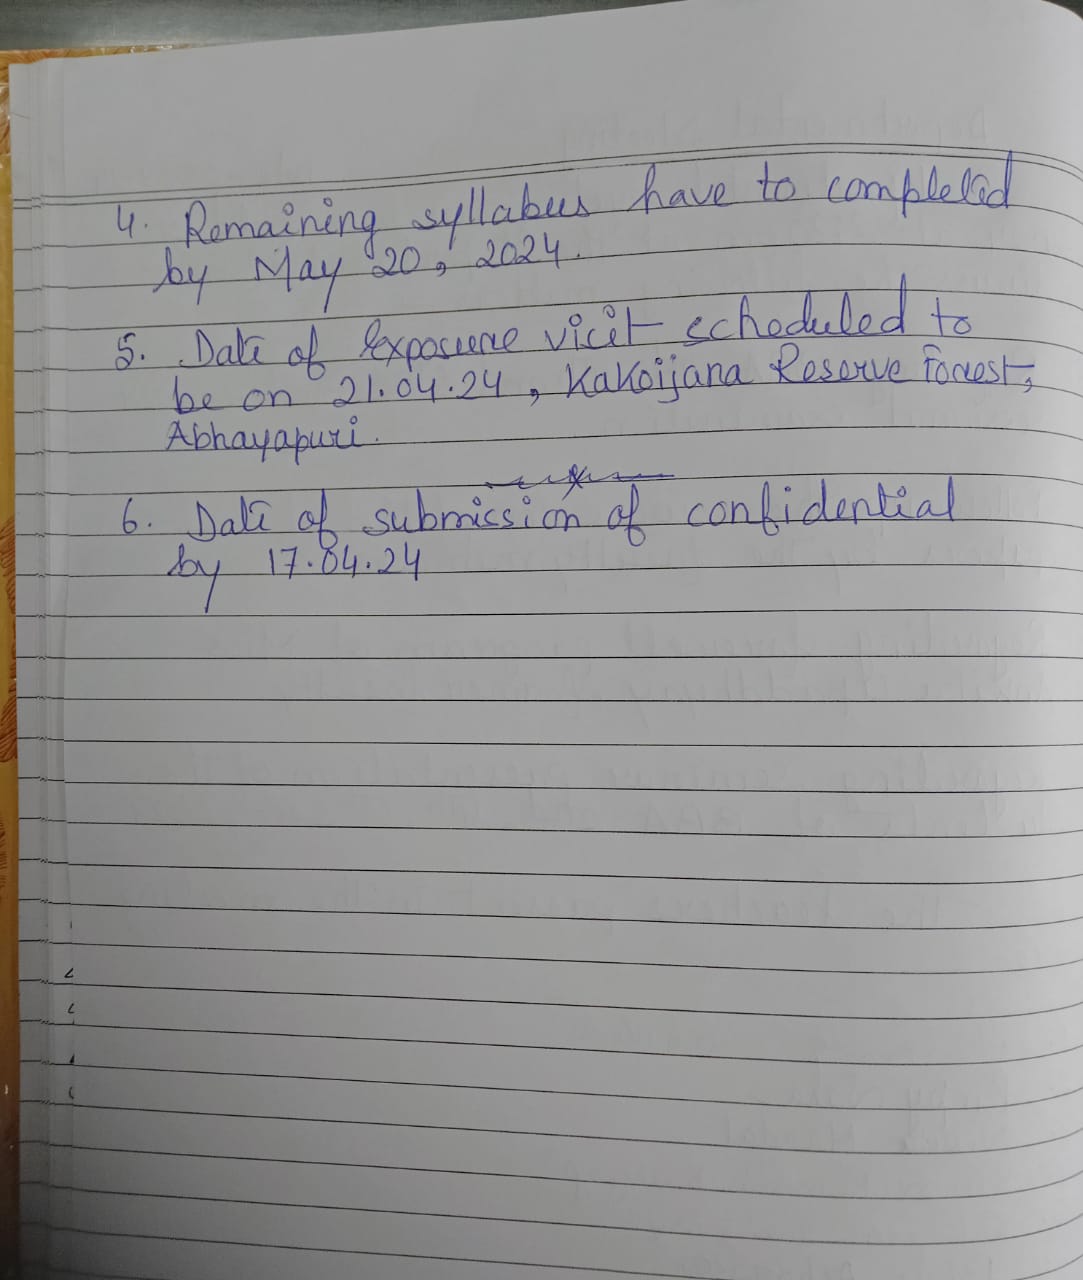 4. Remaining syllabus have to completed
by May 20, 2024.
5. Date of exposure visit scheduled to
be on 21.04.24, Kakoijana Reserve Forest,
Abhayapuri.
6. Date of submission of confidential
by 17.04.24